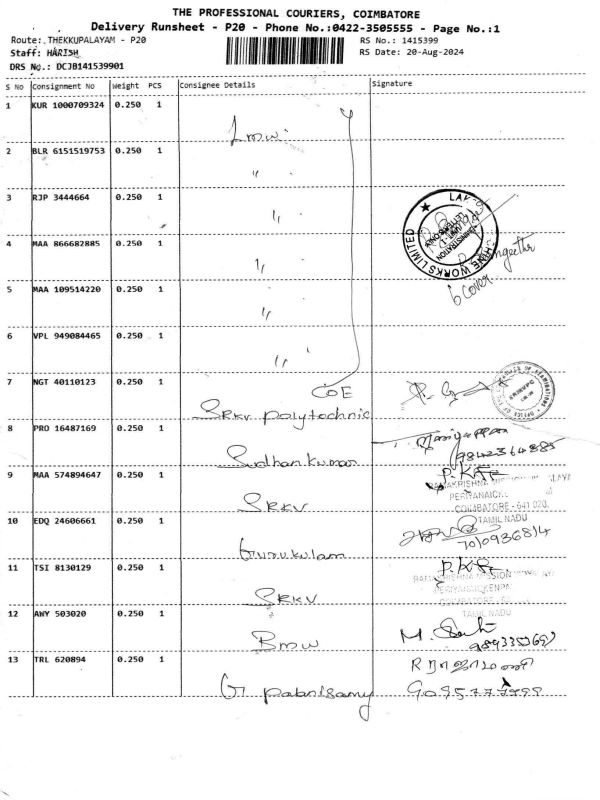 THE PROFESSIONAL COURIERS, COIMBATORE
Delivery Runsheet - P20 - Phone No.:0422-3505555 - Page No.:1
Route: THEKKUPALAYAM - P20
RS No.: 1415399
Staff: HARISH
RS Date: 20-Aug-2024
DRS No.: DCJB141539901
S No Consignment No Weight PCS Consignee Details Signature
1 KUR 1000709324 0.250 1
Lmw
2 BLR 6151519753 0.250 1
"
3 RJP 3444664 0.250 1
"
4 MAA 866682885 0.250 1
"
WORKS LIMITED
6 cover
5 MAA 109514220 0.250 1
"
6 VPL 949084465 0.250 1
"
7 NGT 40110123 0.250 1
COE
SRKV polytechnic
8 PRO 16487169 0.250 1
Sudhan kumar
9842364885
9 MAA 574894647 0.250 1
SRKV
RAMAKRISHNA
COIMBATORE - 641 020
TAMIL NADU
10 EDQ 24606661 0.250 1
Gurukulam
7010936814
11 TSI 8130129 0.250 1
SRKV
RAMAKRISHNA MISSION
TAMIL NADU
12 AWY 503020 0.250 1
BMW
M.
13 TRL 620894 0.250 1
R ராஜாமணி
G palanisamy